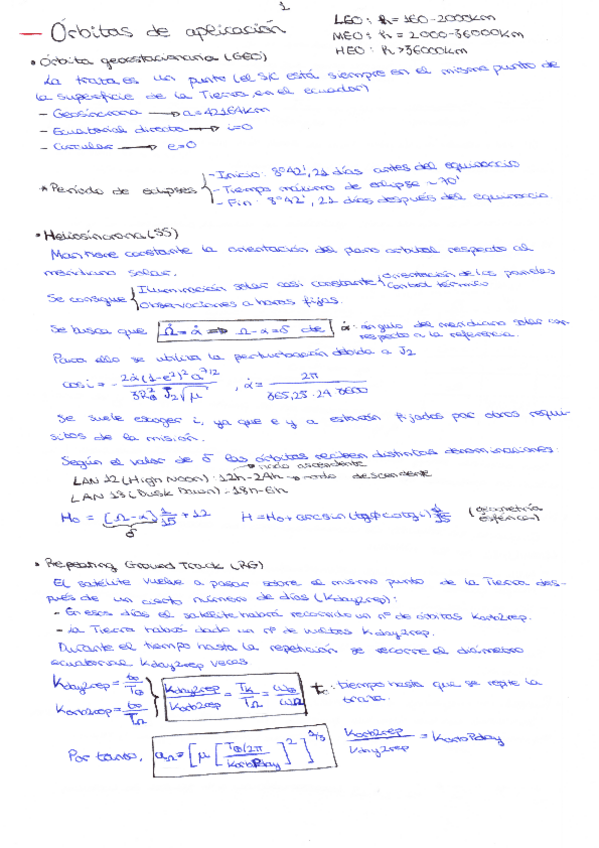 1
— Órbitas de aplicación
LEO: h = 160-2000km
MEO: h = 2000-36000km
HEO: h >36000km
• Órbita geoestacionaria (GEO)
La traza es un punto (el S/C está siempre en el mismo punto de
la superficie de la Tierra, en el ecuador)
- Geosíncrona → a=42164km
- Ecuatorial directa → i=0
- Circular → e=0
* Período de eclipses { - Inicio: 8°42', 21 días antes del equinoccio
- Tiempo máximo de eclipse ~ 70'
- Fin: 8°42', 21 días después del equinoccio.
• Heliosíncrona (SS)
Mantiene constante la orientación del plano orbital respecto al
meridiano solar.
Se consigue { Iluminación solar casi constante { Orientación de los paneles
Control térmico
Observaciones a horas fijas.
Se busca que Ω̇ = α̇ ⇒ Ω-α=δ cte { α: ángulo del meridiano solar con
respecto a la referencia.
Para ello se utiliza la perturbación debida a J2
cos i = - 2α̇(1-e²)² a^7/2 / 3R²⊕ J2 √μ , α̇ = 2π / 365,25·24·3600
Se suele escoger i, ya que e y a estarán fijados por otros requi-
sitos de la misión.
Según el valor de δ las órbitas reciben distintas denominaciones:
→ nodo ascendente
LAN 12 (High Noon): 12h-24h → nodo descendente
LAN 18 (Dusk Dawn) - 18h-6h
H₀ = [Ω-α] 1/15 + 12 H = H₀ + arcsin (tgϕ cotg i) 1/15 (geometría
esférica)
δ
• Repeating Ground Track (RG)
El satélite vuelve a pasar sobre el mismo punto de la Tierra des-
pués de un cierto número de días (Kday2rep):
- En esos días el satélite habrá recorrido un nº de órbitas Korb2rep.
- La Tierra habrá dado un nº de vueltas Kday2rep.
Durante el tiempo hasta la repetición se recorre el diámetro
ecuatorial Kday2rep veces
Kday2rep = to/T⊕
Korb2rep = to/TΩ } Kday2rep / Korb2rep = TΩ / T⊕ = ω⊕ / ωΩ to: tiempo hasta que se repite la
traza.
Por tanto, aΩ = [μ [T⊕/2π / KorbPday]²]^1/3 Korb2rep / Kday2rep = KorbPday